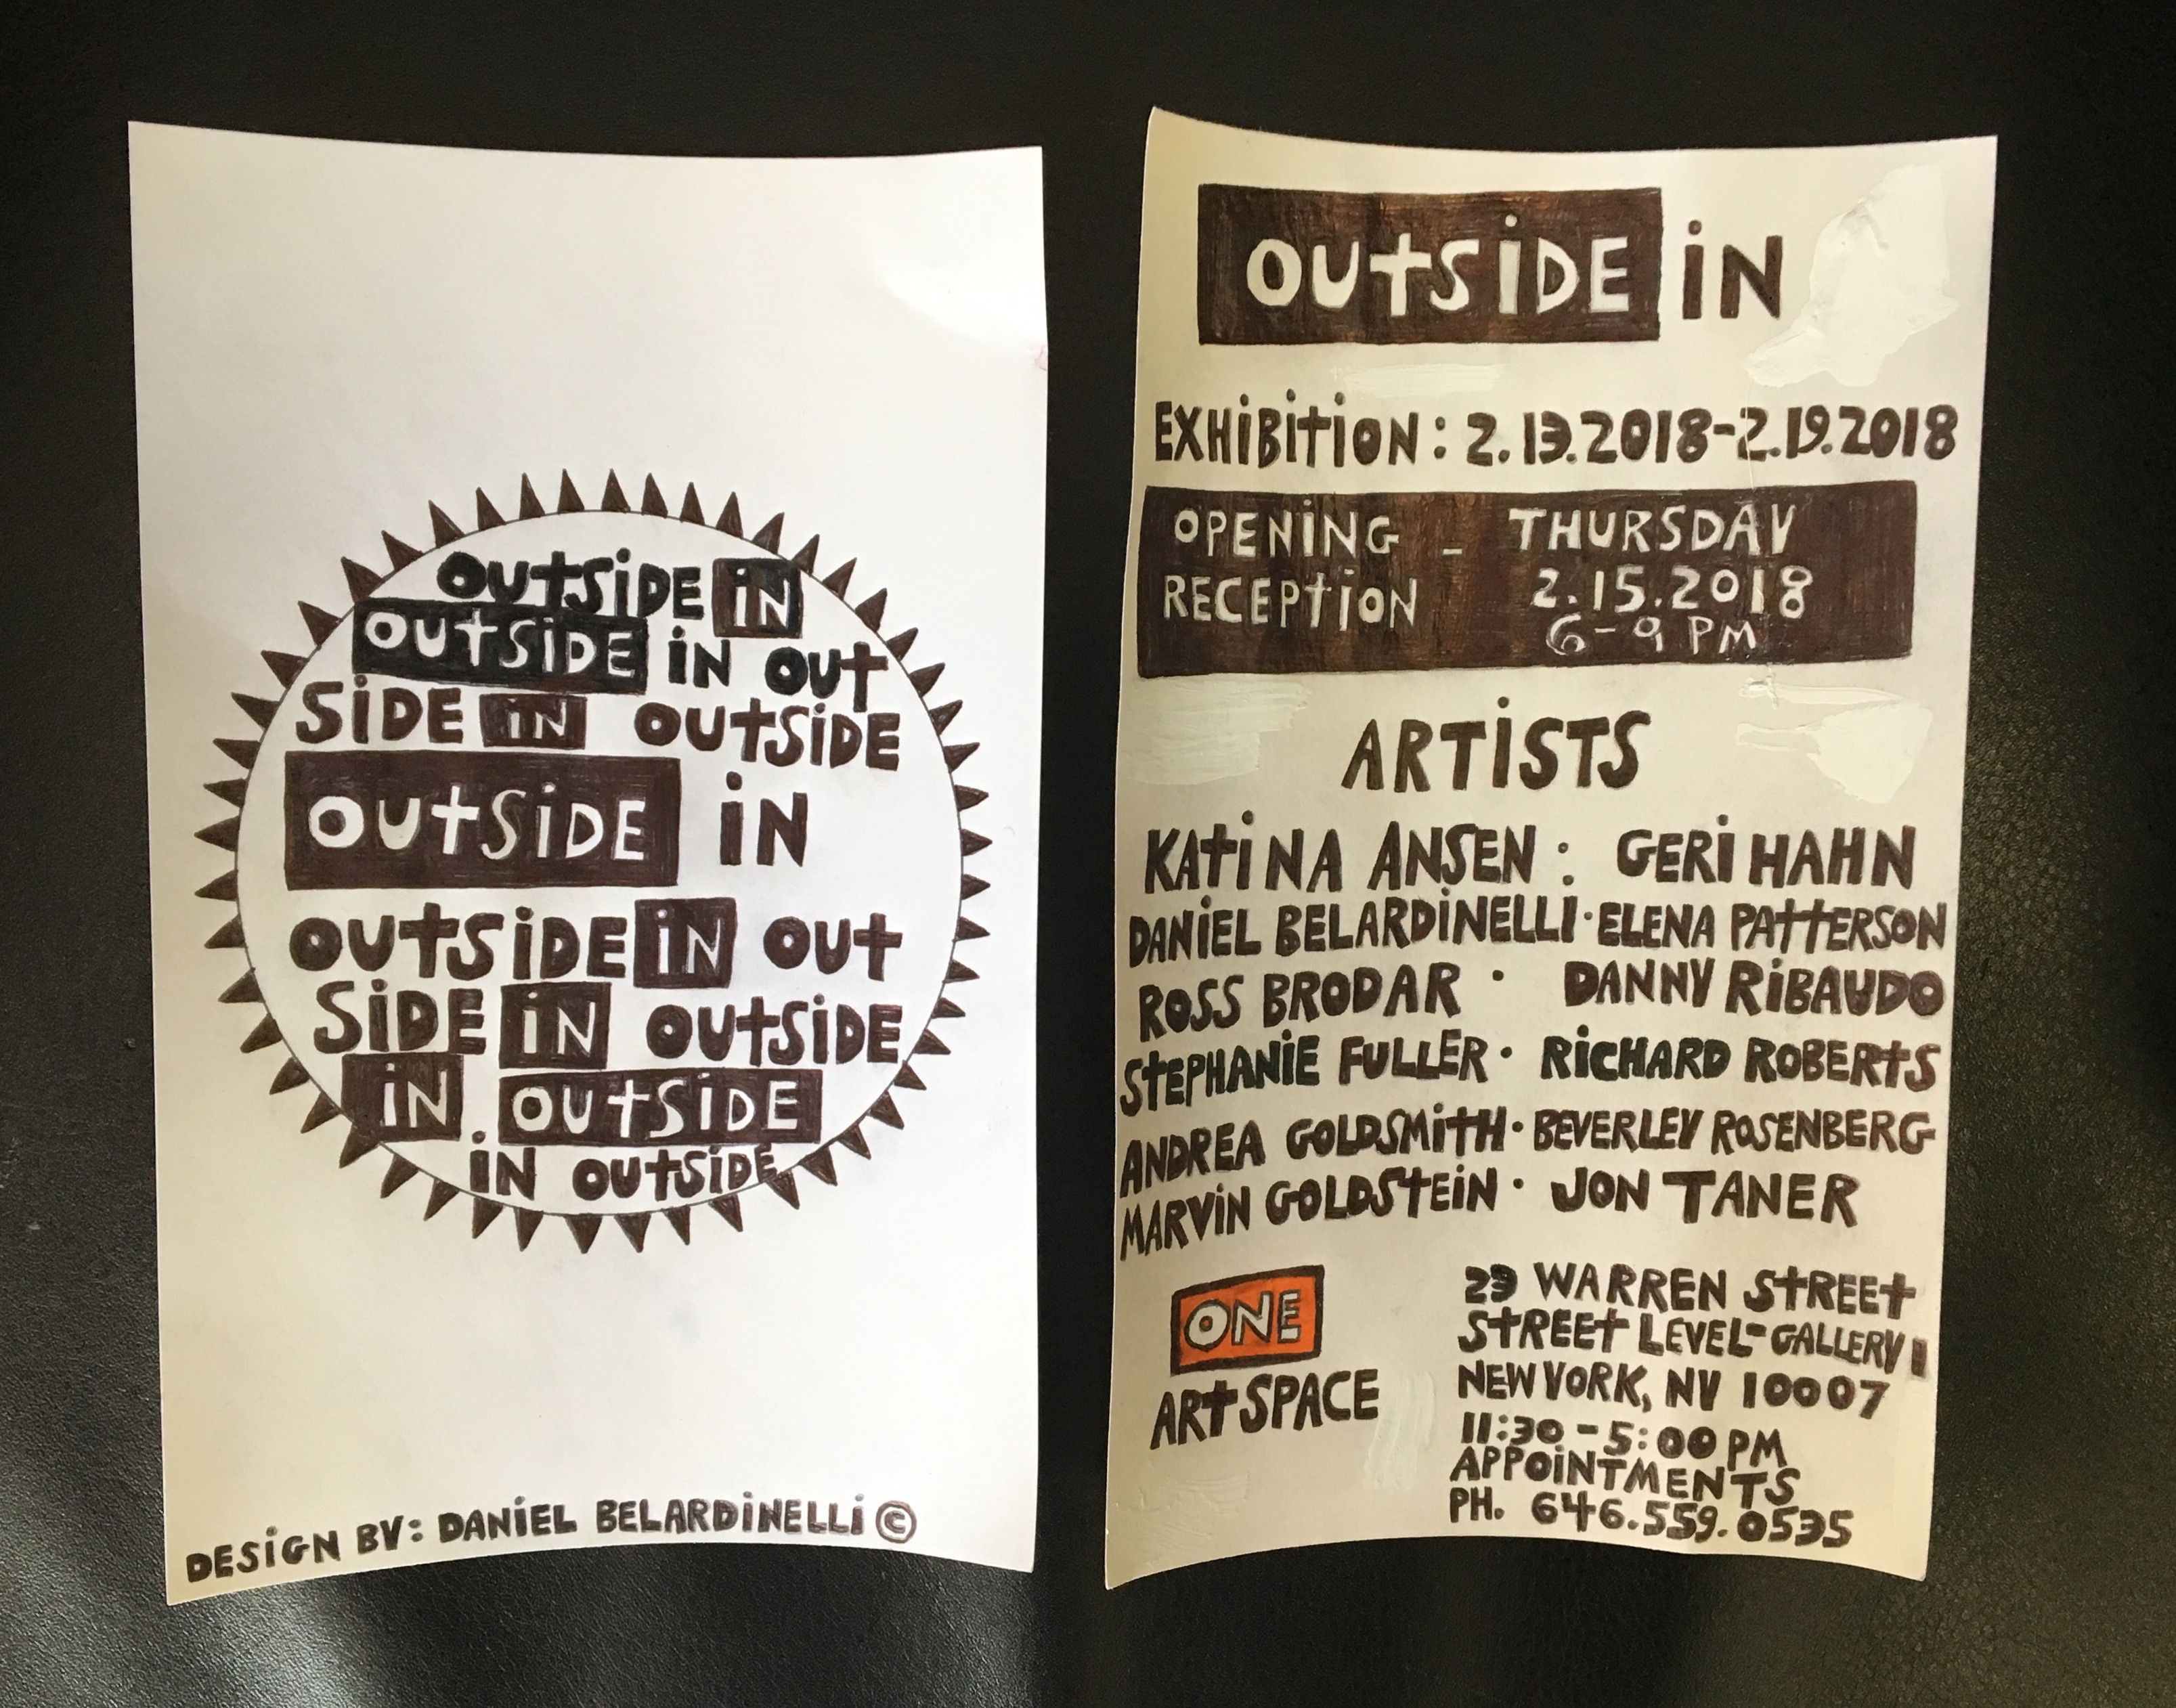 OUtSiDE iN
OUtSiDE iN OUt
SiDE iN OUtSiDE
OUtSiDE iN
OUtSiDE iN OUt
SiDE iN OUtSiDE
iN OUtSiDE
iN OUtSiDE
DESiGN BY: DANiEL BELARDiNELLi ©
OUtSiDE iN
EXHiBitiON: 2.13.2018-2.19.2018
OPENiNG - THURSDAY
RECEPtiON 2.15.2018
6-9 PM
ARTiSTS
KAtiNA ANSEN : GERi HAHN
DANiEL BELARDiNELLi · ELENA PAttERSON
ROSS BRODAR · DANNY RiBAUDO
StEPHANiE FULLER · RiCHARD ROBERtS
ANDREA GOLDSMitH · BEVERLEY ROSENBERG
MARViN GOLDStEiN · JON TANER
ONE
ARt SPACE
23 WARREN StREEt
StREEt LEVEL-GALLERY 1
NEW YORK, NY 10007
11:30 - 5:00 PM
APPOiNTMENTS
PH. 646.559.0535